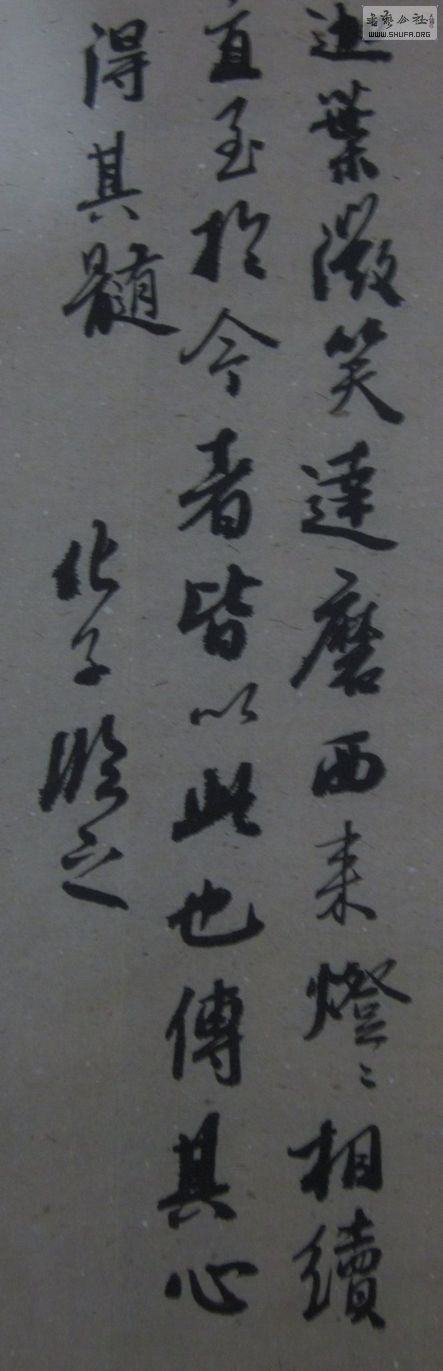 迦葉微笑達磨西来燈〻相續
直至於今者皆以此也傳其心
得其髓
化子臨之
書藝公社
WWW.SHUFA.ORG